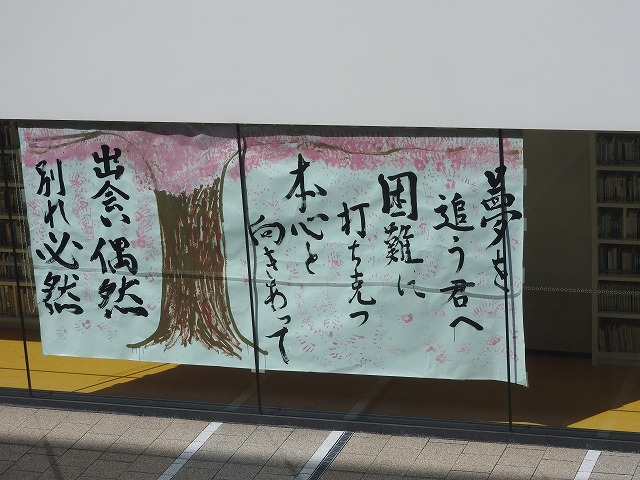 夢を
追う君へ
困難に
打ち克つ
本心と
向きあって
出会い偶然
別れ必然